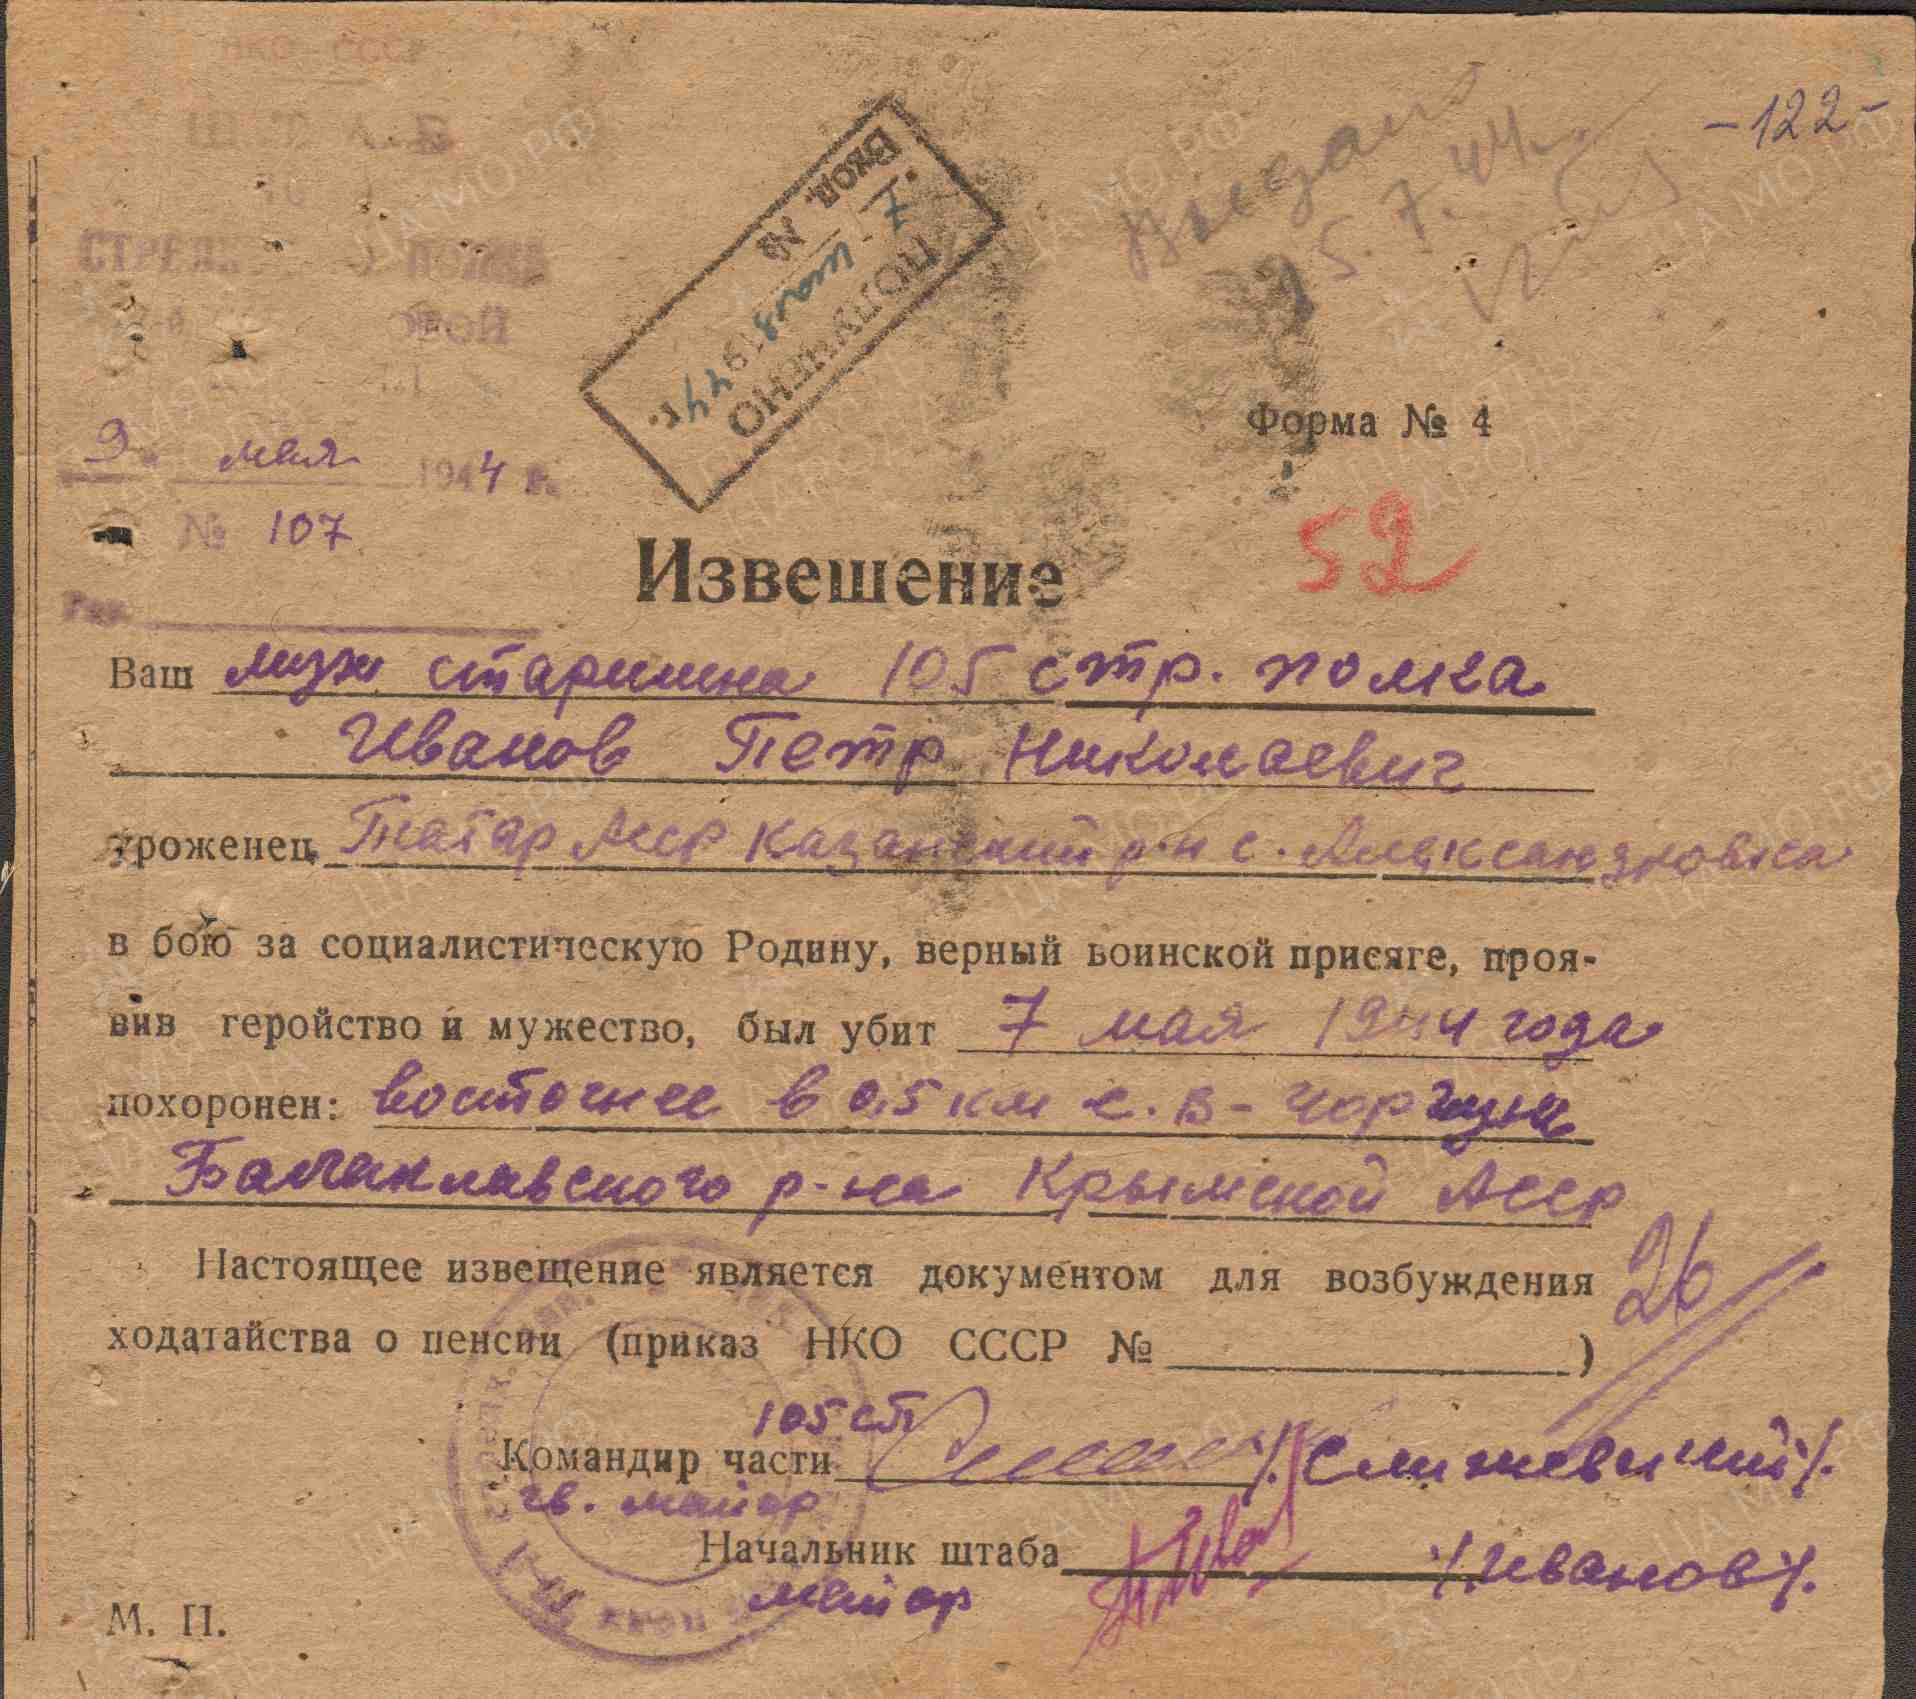 НКО СССР
-122-
Вход. №
7 июля 1944 г.
ПОЛУЧЕНО
15.7.44.
Форма № 4
9 мая 1944 г.
№ 107
52
Извещение
Ваш муж старшина 105 стр. полка
Иванов Петр Николаевич
уроженец Татар Асср Казанский р-н с. Александровка
в бою за социалистическую Родину, верный воинской присяге, проя-
вив геройство и мужество, был убит 7 мая 1944 года
похоронен: восточнее в 0,5 км с. В-Чоргунь
Балаклавского р-на Крымской Асср
Настоящее извещение является документом для возбуждения
26
ходатайства о пенсии (приказ НКО СССР № )
105 сп
Командир части /Слижевский/.
гв. майор
Начальник штаба /Иванов/.
майор
М. П.